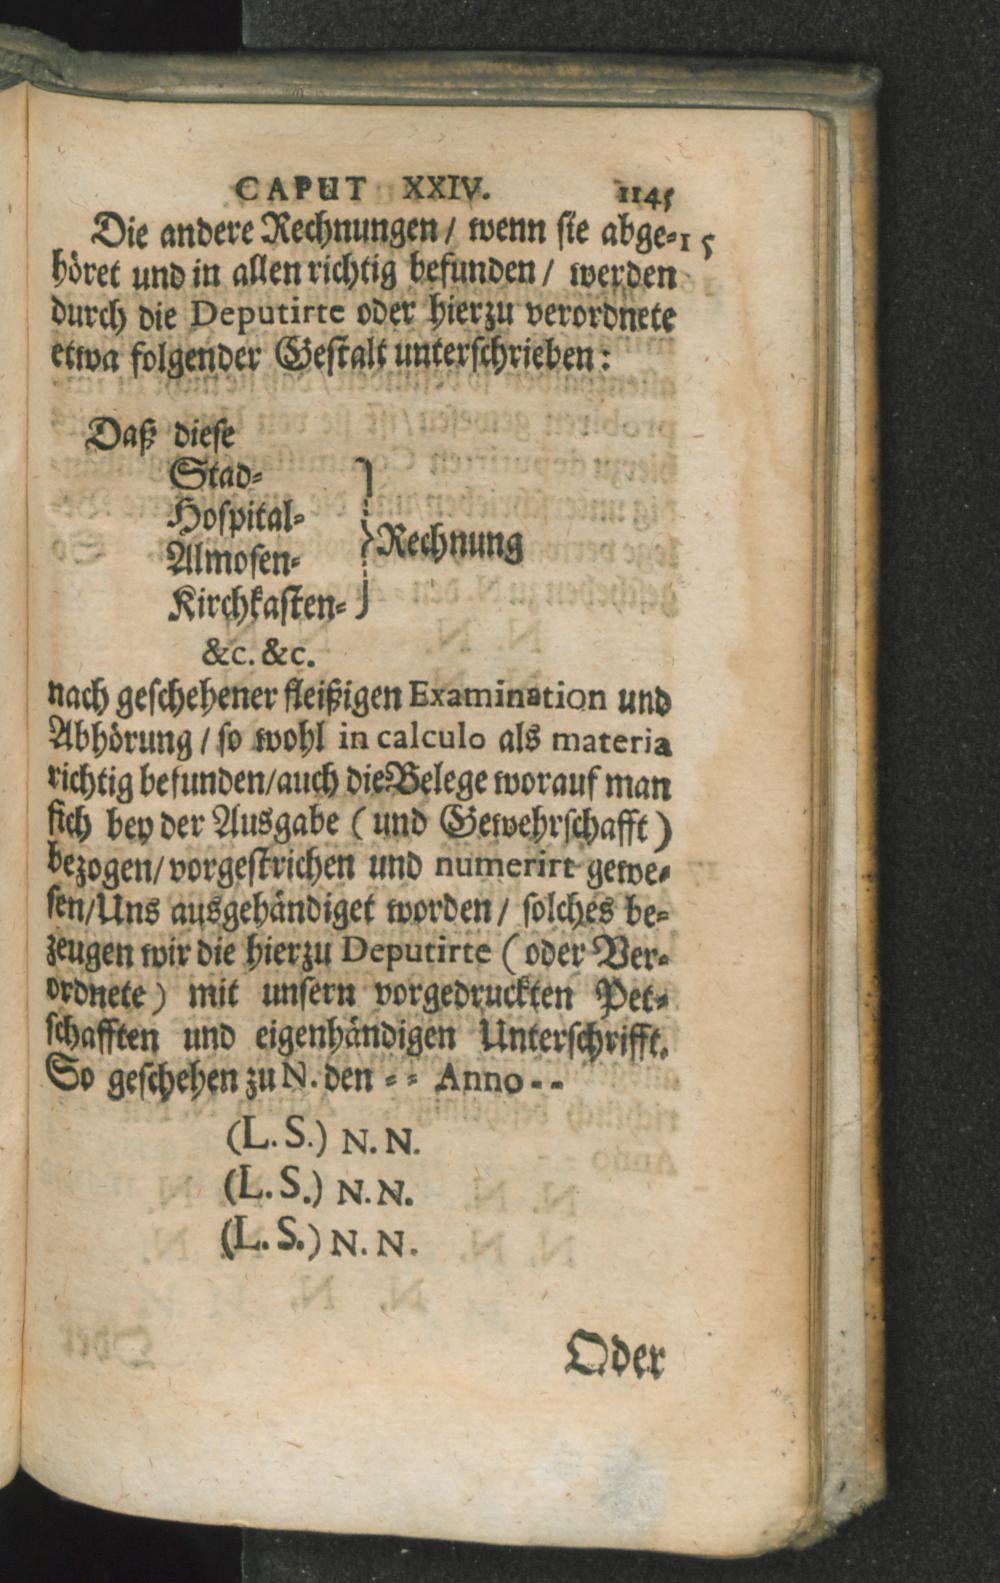 CAPUT XXIV. 1145
Die andere Rechnungen / wenn sie abge- 15
höret und in allen richtig befunden / werden
durch die Deputirte oder hierzu verordnete
etwa folgender Gestalt unterschrieben:
Daß diese
Stad-
Hospital-
Almosen- } Rechnung
Kirchkasten-
&c. &c.
nach geschehener fleißigen Examination und
Abhörung / so wohl in calculo als materia
richtig befunden/auch die Belege worauf man
sich bey der Ausgabe (und Gewehrschafft)
bezogen/ vorgestrichen und numerirt gewe-
sen/Uns ausgehändiget worden / solches be-
zeugen wir die hierzu Deputirte (oder Ver-
ordnete) mit unsern vorgedruckten Pet-
schafften und eigenhändigen Unterschrifft.
So geschehen zu N. den - - Anno - -
(L. S.) N. N.
(L. S.) N. N.
(L. S.) N. N.
Oder